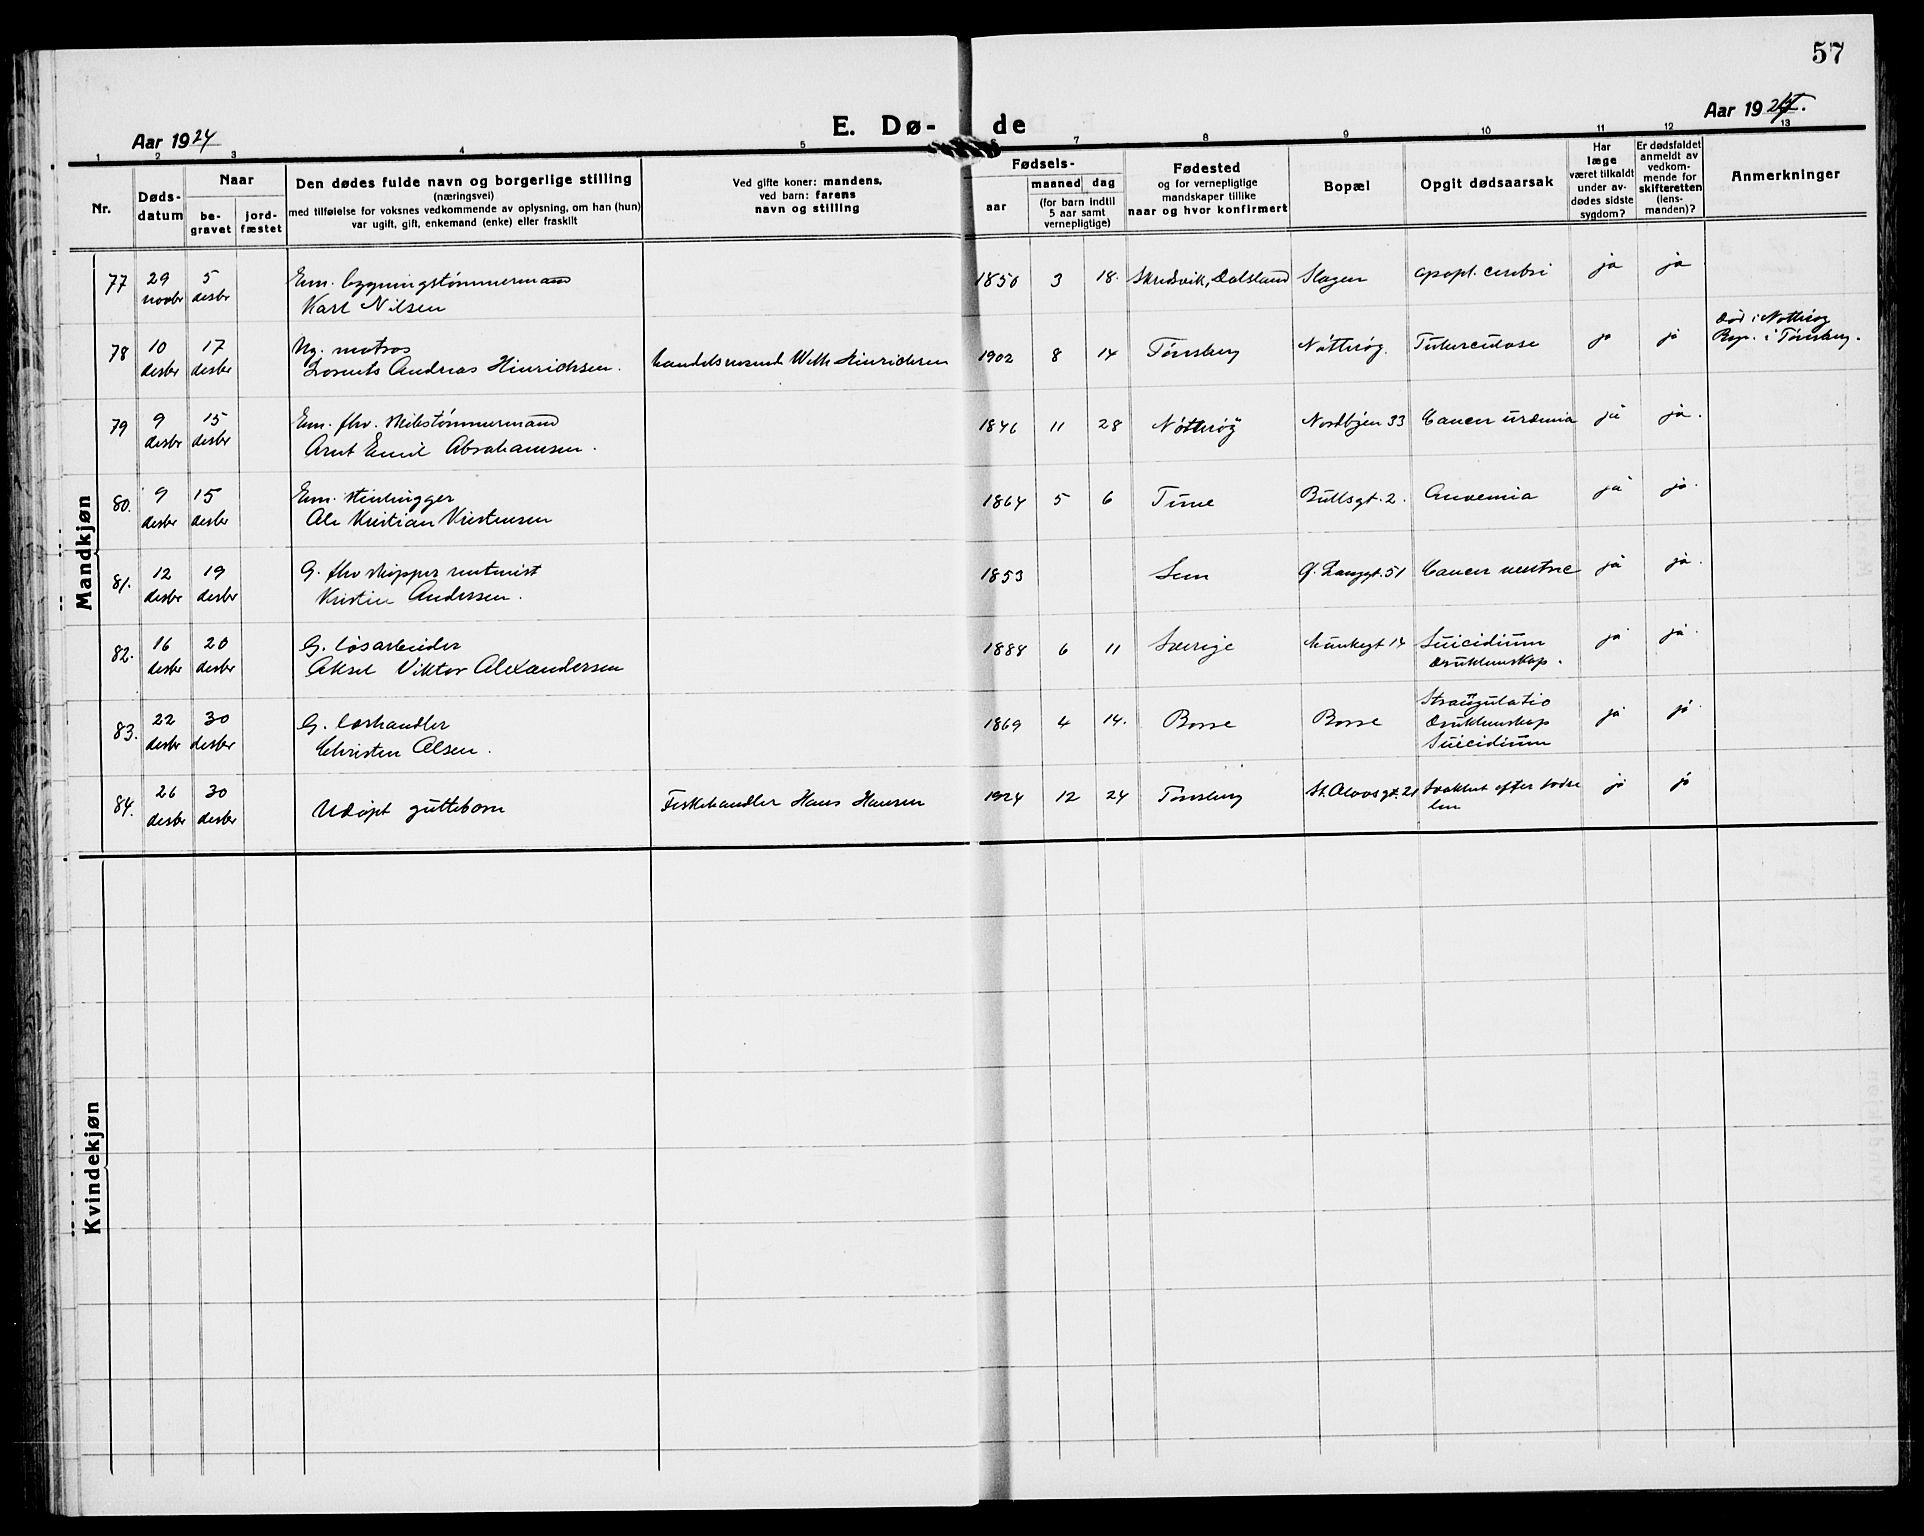 57
Aar 1924
E. Dø- de
Aar 1924.
1 2 3 4 5 7 8 9 10 11 12 13
Nr.
Døds-
datum
Naar
be-
gravet
jord-
fæstet
Den dødes fulde navn og borgerlige stilling
(næringsvei)
med tilføielse for voksnes vedkommende av oplysning, om han (hun)
var ugift, gift, enkemand (enke) eller fraskilt
Ved gifte koner: mandens,
ved barn: farens
navn og stilling
Fødsels-
aar
maaned dag
(for barn indtil
5 aar samt
vernepligtige)
Fødested
og for vernepligtige
mandskaper tillike
naar og hvor konfirmert
Bopæl
Opgit dødsaarsak
Har
læge
været tilkaldt
under av-
dødes sidste
sygdom?
Er dødsfaldet
anmeldt av
vedkom-
mende for
skifteretten
(lens-
manden)?
Anmerkninger
Mandkjøn
77 29 5 Em. bygningstømmermand 1850 3 18. Skredsvik, Dalsland Slagen apopl. cerebri ja ja
novbr desbr Karl Nilsen
78 10 17 Ug. matros 1902 8 14 Tønsberg Nøtterøy. Tuberculose ja ja Død i Nøtterøy
desbr desbr Lorents Andreas Hinrichsen. handelsreisende Wilh. Hinrichsen i Tønsberg.
79 9 15 Em. fhv. skibstømmermand 1846 11 28 Nøtterøy Nordbyen 33 Cancer ja ja.
desbr desbr Arnt Emil Abrahamsen.
80. 9 15 Em. stenhugger 1864 5 6 Tune Bullsgt. 2. Anemia ja ja.
desbr desbr Ole Kristian Kristensen
81. 12 19 G. fhv skipper rentenist 1853 Sem Langgt. 51 Cancer ventric ja ja.
desbr desbr Kristen Andersen.
82. 16 20 G. løsarbeider 1888 6 11 Sverige Munkegt 14 Suicidium ja ja.
desbr desbr Aksel Viktor Alexandersen Drukkenskap.
83. 22 30 G. 1869 4 14. Borre Borre Strangulatio ja ja.
desbr desbr Christen Olsen. Drukkenskap
Suicidium
84. 26 30 Udøpt guttebarn Fiskehandler Hans Hansen 1924 12 24 Tønsberg St. Olavsgt. 21 Svakhet efter fødse ja ja
desbr desbr len
Kvindekjøn